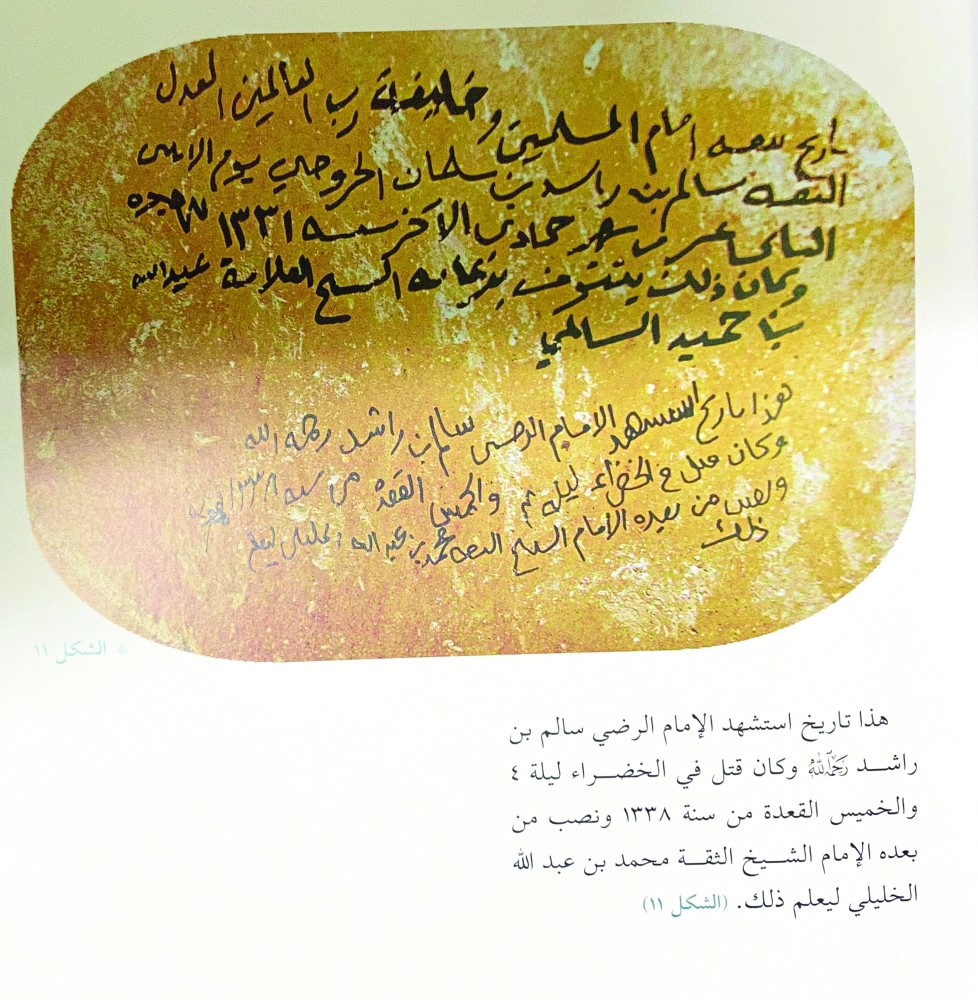 تاريخ بيعه امام المسلمين وخليفة رب العالمين العدل
الثقه سالم بن راشد بن سلطان الخروصي يوم الاثنين
الثاني عشر من شهر جمادى الاخر سنه ١٣٣١ هجره
وكان ذلك بتنوف بزعامه الشيخ العلامة عبدالله
بن حميد السالمي
هذا تاريخ استشهد الامام الرضي سالم بن راشد رحمه الله
وكان قتل في الخضراء ليلة ٤ والخميس القعدة من سنه ١٣٣٨
ونصب من بعده الامام الشيخ الثقه محمد بن عبد الله الخليلي ليعلم
ذلك
▲ الشكل ١١
هذا تاريخ استشهد الإمام الرضي سالم بن
راشد رَحِمَهُ اللهُ وكان قتل في الخضراء ليلة ٤
والخميس القعدة من سنة ١٣٣٨ ونصب من
بعده الإمام الشيخ الثقة محمد بن عبد الله
الخليلي ليعلم ذلك. (الشكل ١١)